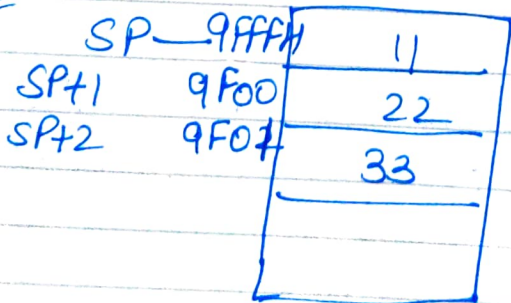 SP—9FFFH 11
SP+1 9F00 22
SP+2 9F01 33